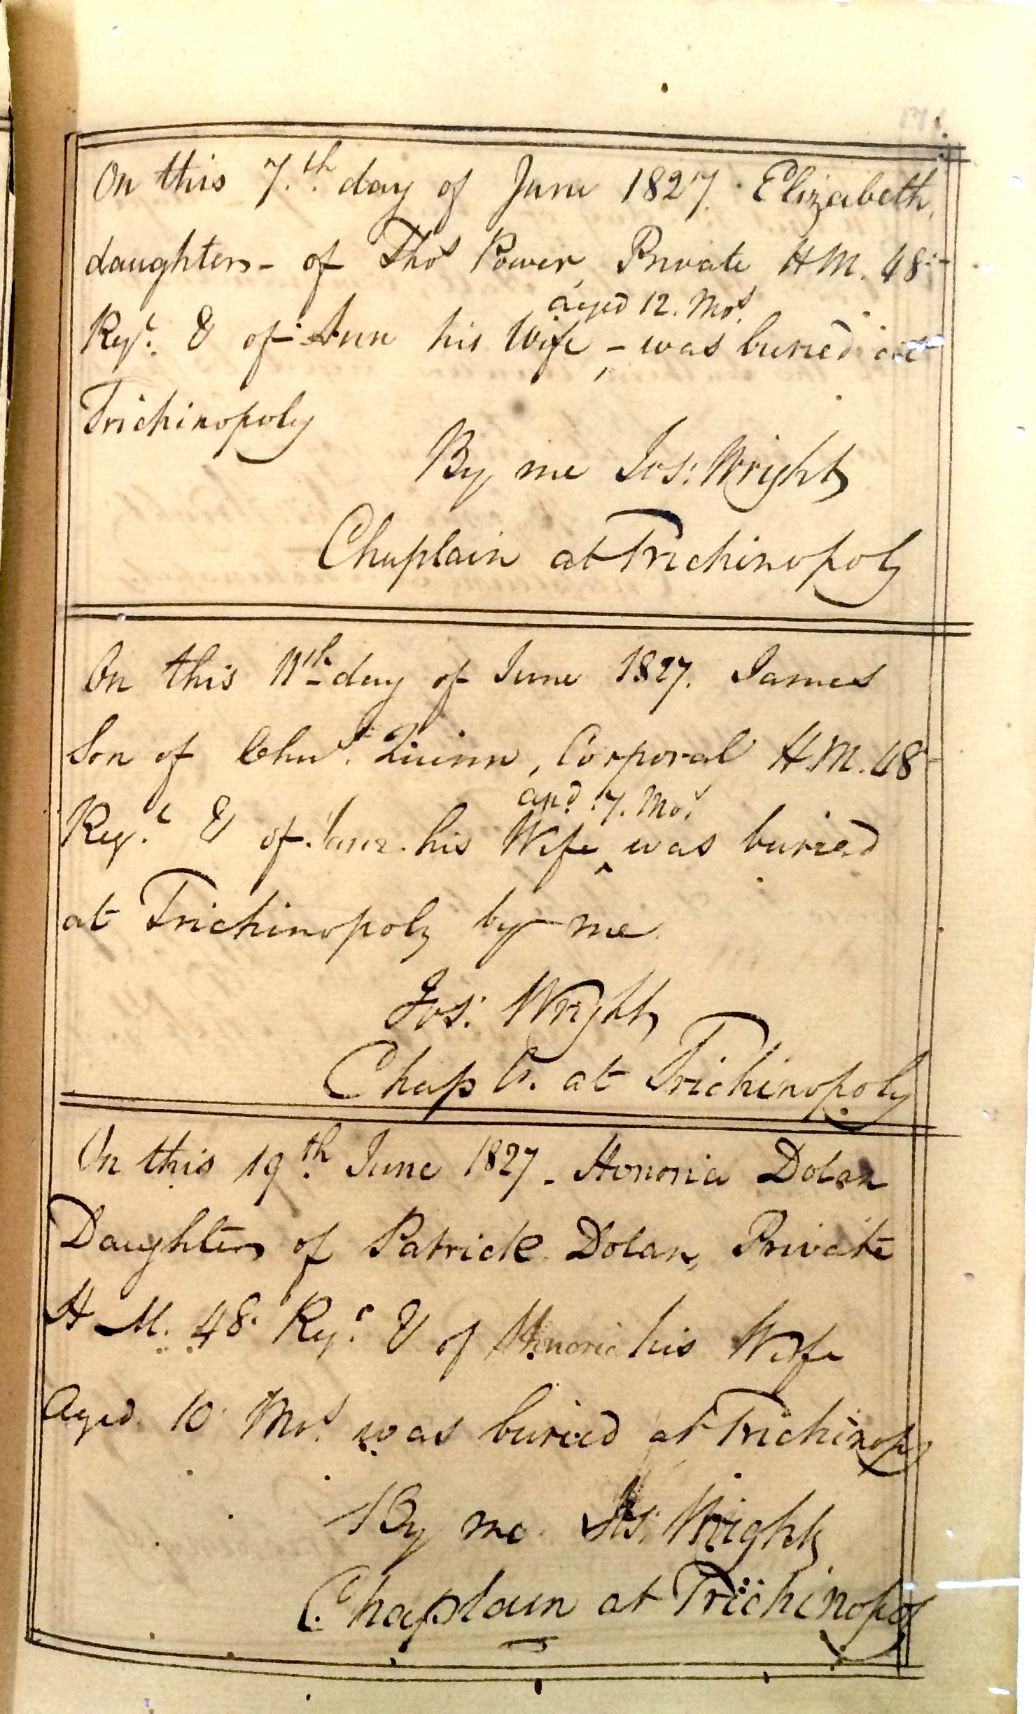 On this 7.th day of June 1827. Elizabeth,
daughter - of Thos Power, Private H.M. 48.-
aged 12. Mos.
Regt. & of Ann his Wife, - was buried at
Trichinopoly
By me Jos: Wright
Chaplain at Trichinopoly
On this 11th day of June 1827. James
Son of Quinn, Corporal H.M. 48
aged 7. Mos.
Regt. & of Jane his Wife was buried
at Trichinopoly by me.
Jos: Wright
Chapln. at Trichinopoly
On this 19.th June 1827 - Honoria Dolan
Daughter of Patrick Dolan, Private
H.M. 48. Regt. & of Honoria his Wife
Aged 10 Mos. was buried at Trichinopy
By me Jos: Wright
Chaplain at Trichinopoly